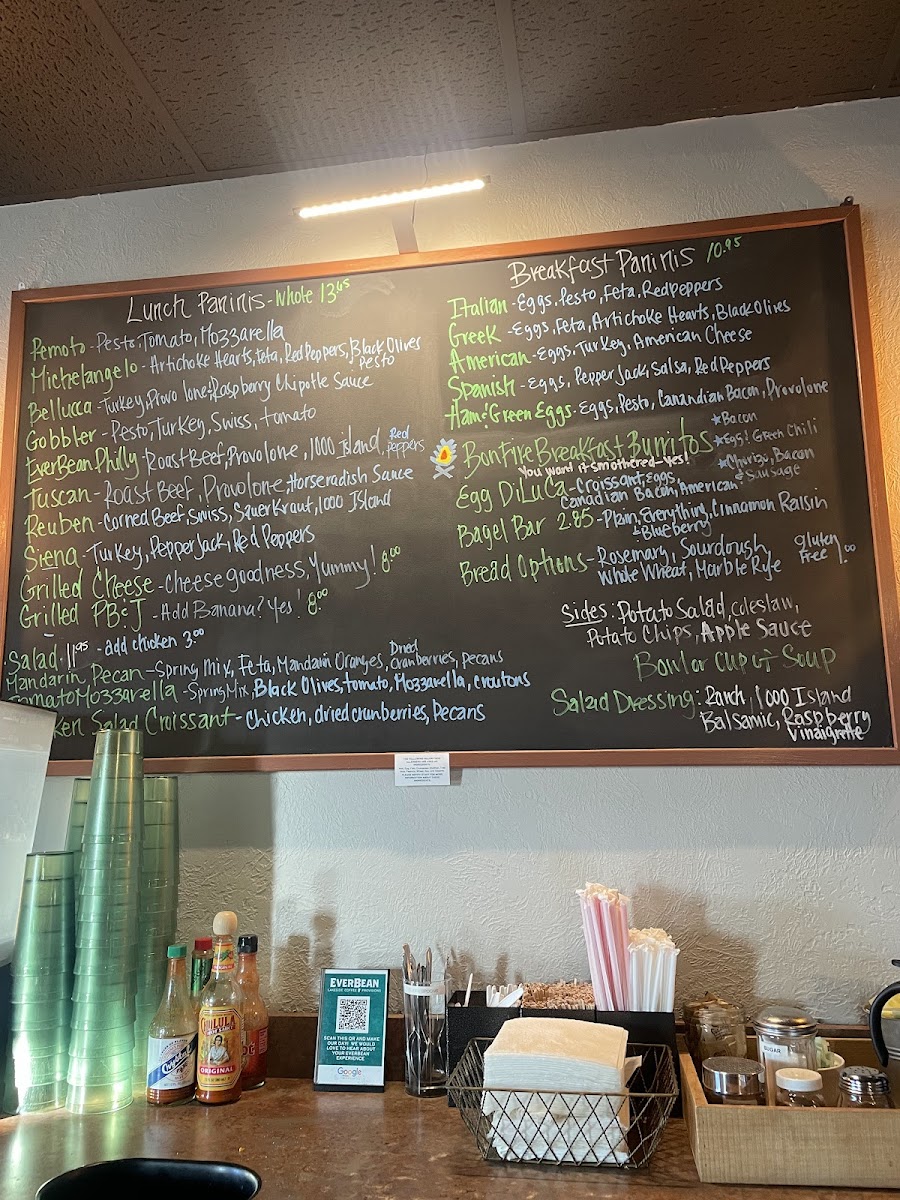 Lunch Paninis - Whole 13.45
Pemoto - Pesto, Tomato, Mozzarella
Michelangelo - Artichoke Hearts, Feta, Red Peppers, Black Olives
Pesto
Bellucca - Turkey, Provolone, Raspberry Chipotle Sauce
Gobbler - Pesto, Turkey, Swiss, Tomato
EverBean Philly - Roast Beef, Provolone, 1000 Island, Red Peppers
Tuscan - Roast Beef, Provolone, Horseradish Sauce
Reuben - Corned Beef, Swiss, Sauer Kraut, 1000 Island
Siena - Turkey, Pepper Jack, Red Peppers
Grilled Cheese - Cheese goodness, Yummy! 8.00
Grilled PB&J - Add Banana? Yes! 8.00
Salad 11.95 - add chicken 3.00
Mandarin Pecan - Spring Mix, Feta, Mandarin Oranges, Dried Cranberries, pecans
Tomato Mozzarella - Spring Mix, Black Olives, tomato, Mozzarella, croutons
ken Salad Croissant - Chicken, dried cranberries, Pecans
Breakfast Paninis 10.95
Italian - Eggs, Pesto, Feta, Red peppers
Greek - Eggs, Feta, Artichoke Hearts, Black Olives
American - Eggs, Turkey, American Cheese
Spanish - Eggs, Pepper Jack, Salsa, Red Peppers
Ham & Green Eggs - Eggs, Pesto, Canandian Bacon, Provolone
Bonfire Breakfast Burritos
*Bacon
*Egg & Green Chili
*Chorizo, Bacon
& Sausage
You want it smothered - yes!
Egg DiLuca - Croissant, Eggs,
Canadian Bacon, American
Bagel Bar 2.85 - Plain, Everything, Cinnamon Raisin
+ Blueberry
Bread Options - Rosemary, Sourdough,
Whole Wheat, Marble Rye
Gluten
Free 1.00
Sides: Potato Salad, coleslaw,
Potato Chips, Apple Sauce
Bowl or Cup of Soup
Salad Dressing: Ranch, 1000 Island
Balsamic, Raspberry
Vinaigrette
CHOLULA
ORIGINAL
EVERBEAN
LAKESIDE COFFEE & PROVISIONS
SCAN THIS OR AND MAKE
OUR DAY! WE WOULD
LOVE TO HEAR ABOUT
YOUR EVERBEAN
EXPERIENCE
Google
SUGAR